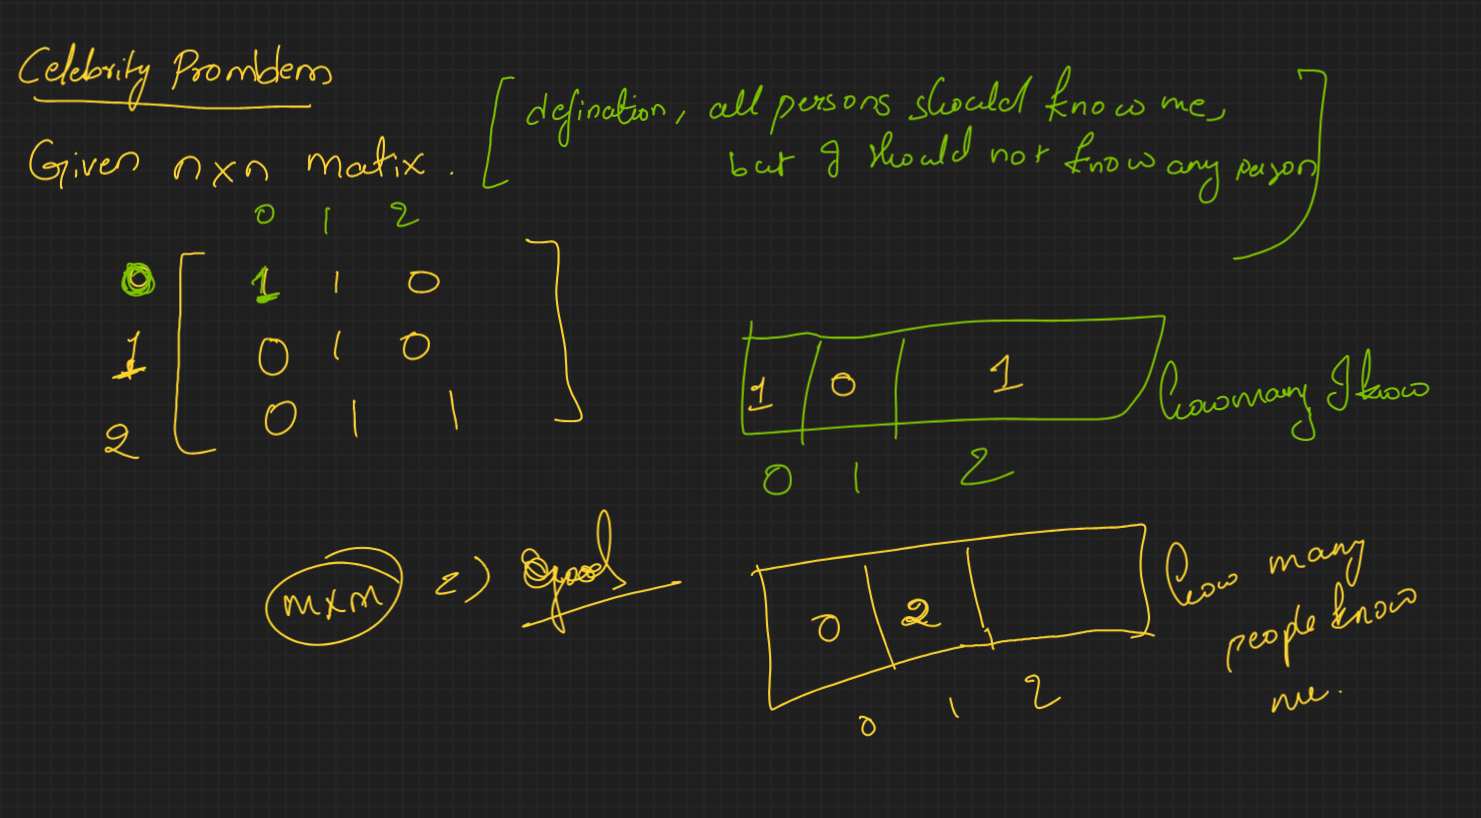 Celebrity Promblem
Given nxn matix.
[defination, all persons should know me,
but I should not know any person]
0 1 2
0 [ 1 1 0 ]
1 [ 0 1 0 ]
2 [ 0 1 1 ]
1 0 1
0 1 2
how many I know
mxm
0 2
0 1 2
how many
people know
me.